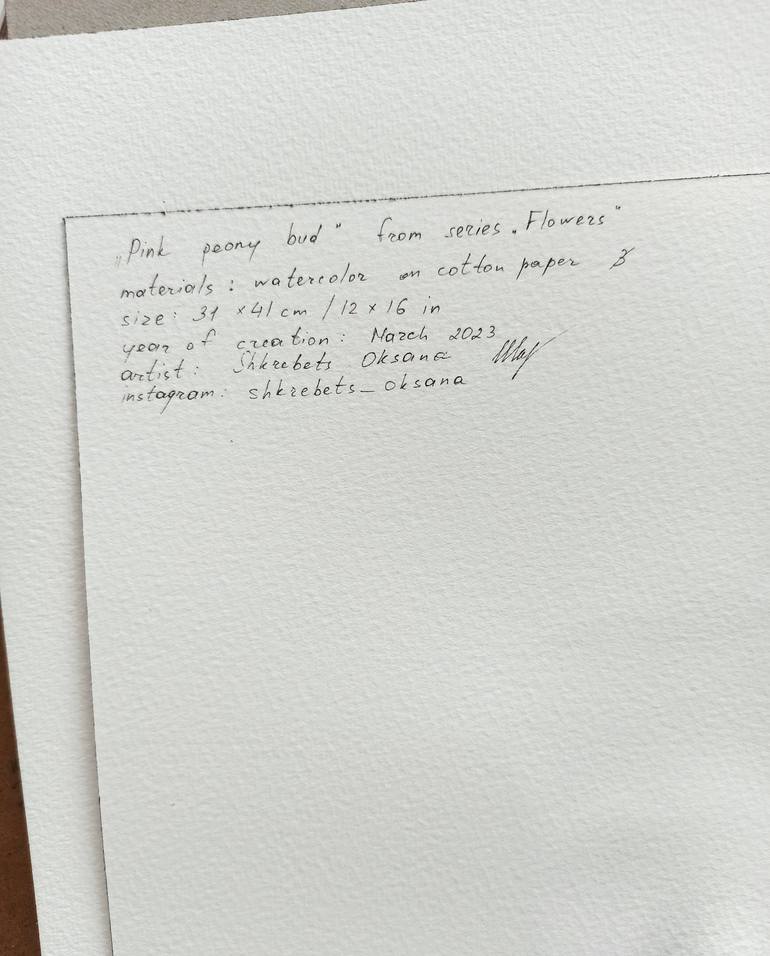 „Pink peony bud" from series „Flowers"
materials: watercolor on cotton paper
size: 31 x 41 cm / 12 x 16 in
year of creation: March 2023
artist: Shkrebets Oksana
instagram: shkrebets_oksana